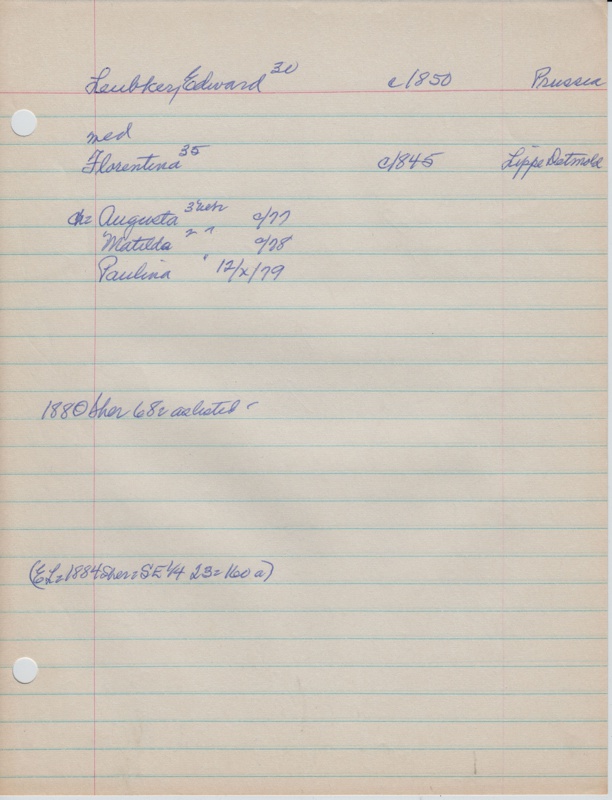 Leubker, Edward 30 c/1850 Prussia
med
Florentina 35 c/1845 Lippe Detmold
ch= Augusta 3 Nebr c/77
Matilda 2 " c/78
Paulina " 12/x/79
1880 Sher 68= as listed -
(EL=1884 Sher=SE 1/4 23=160 a)